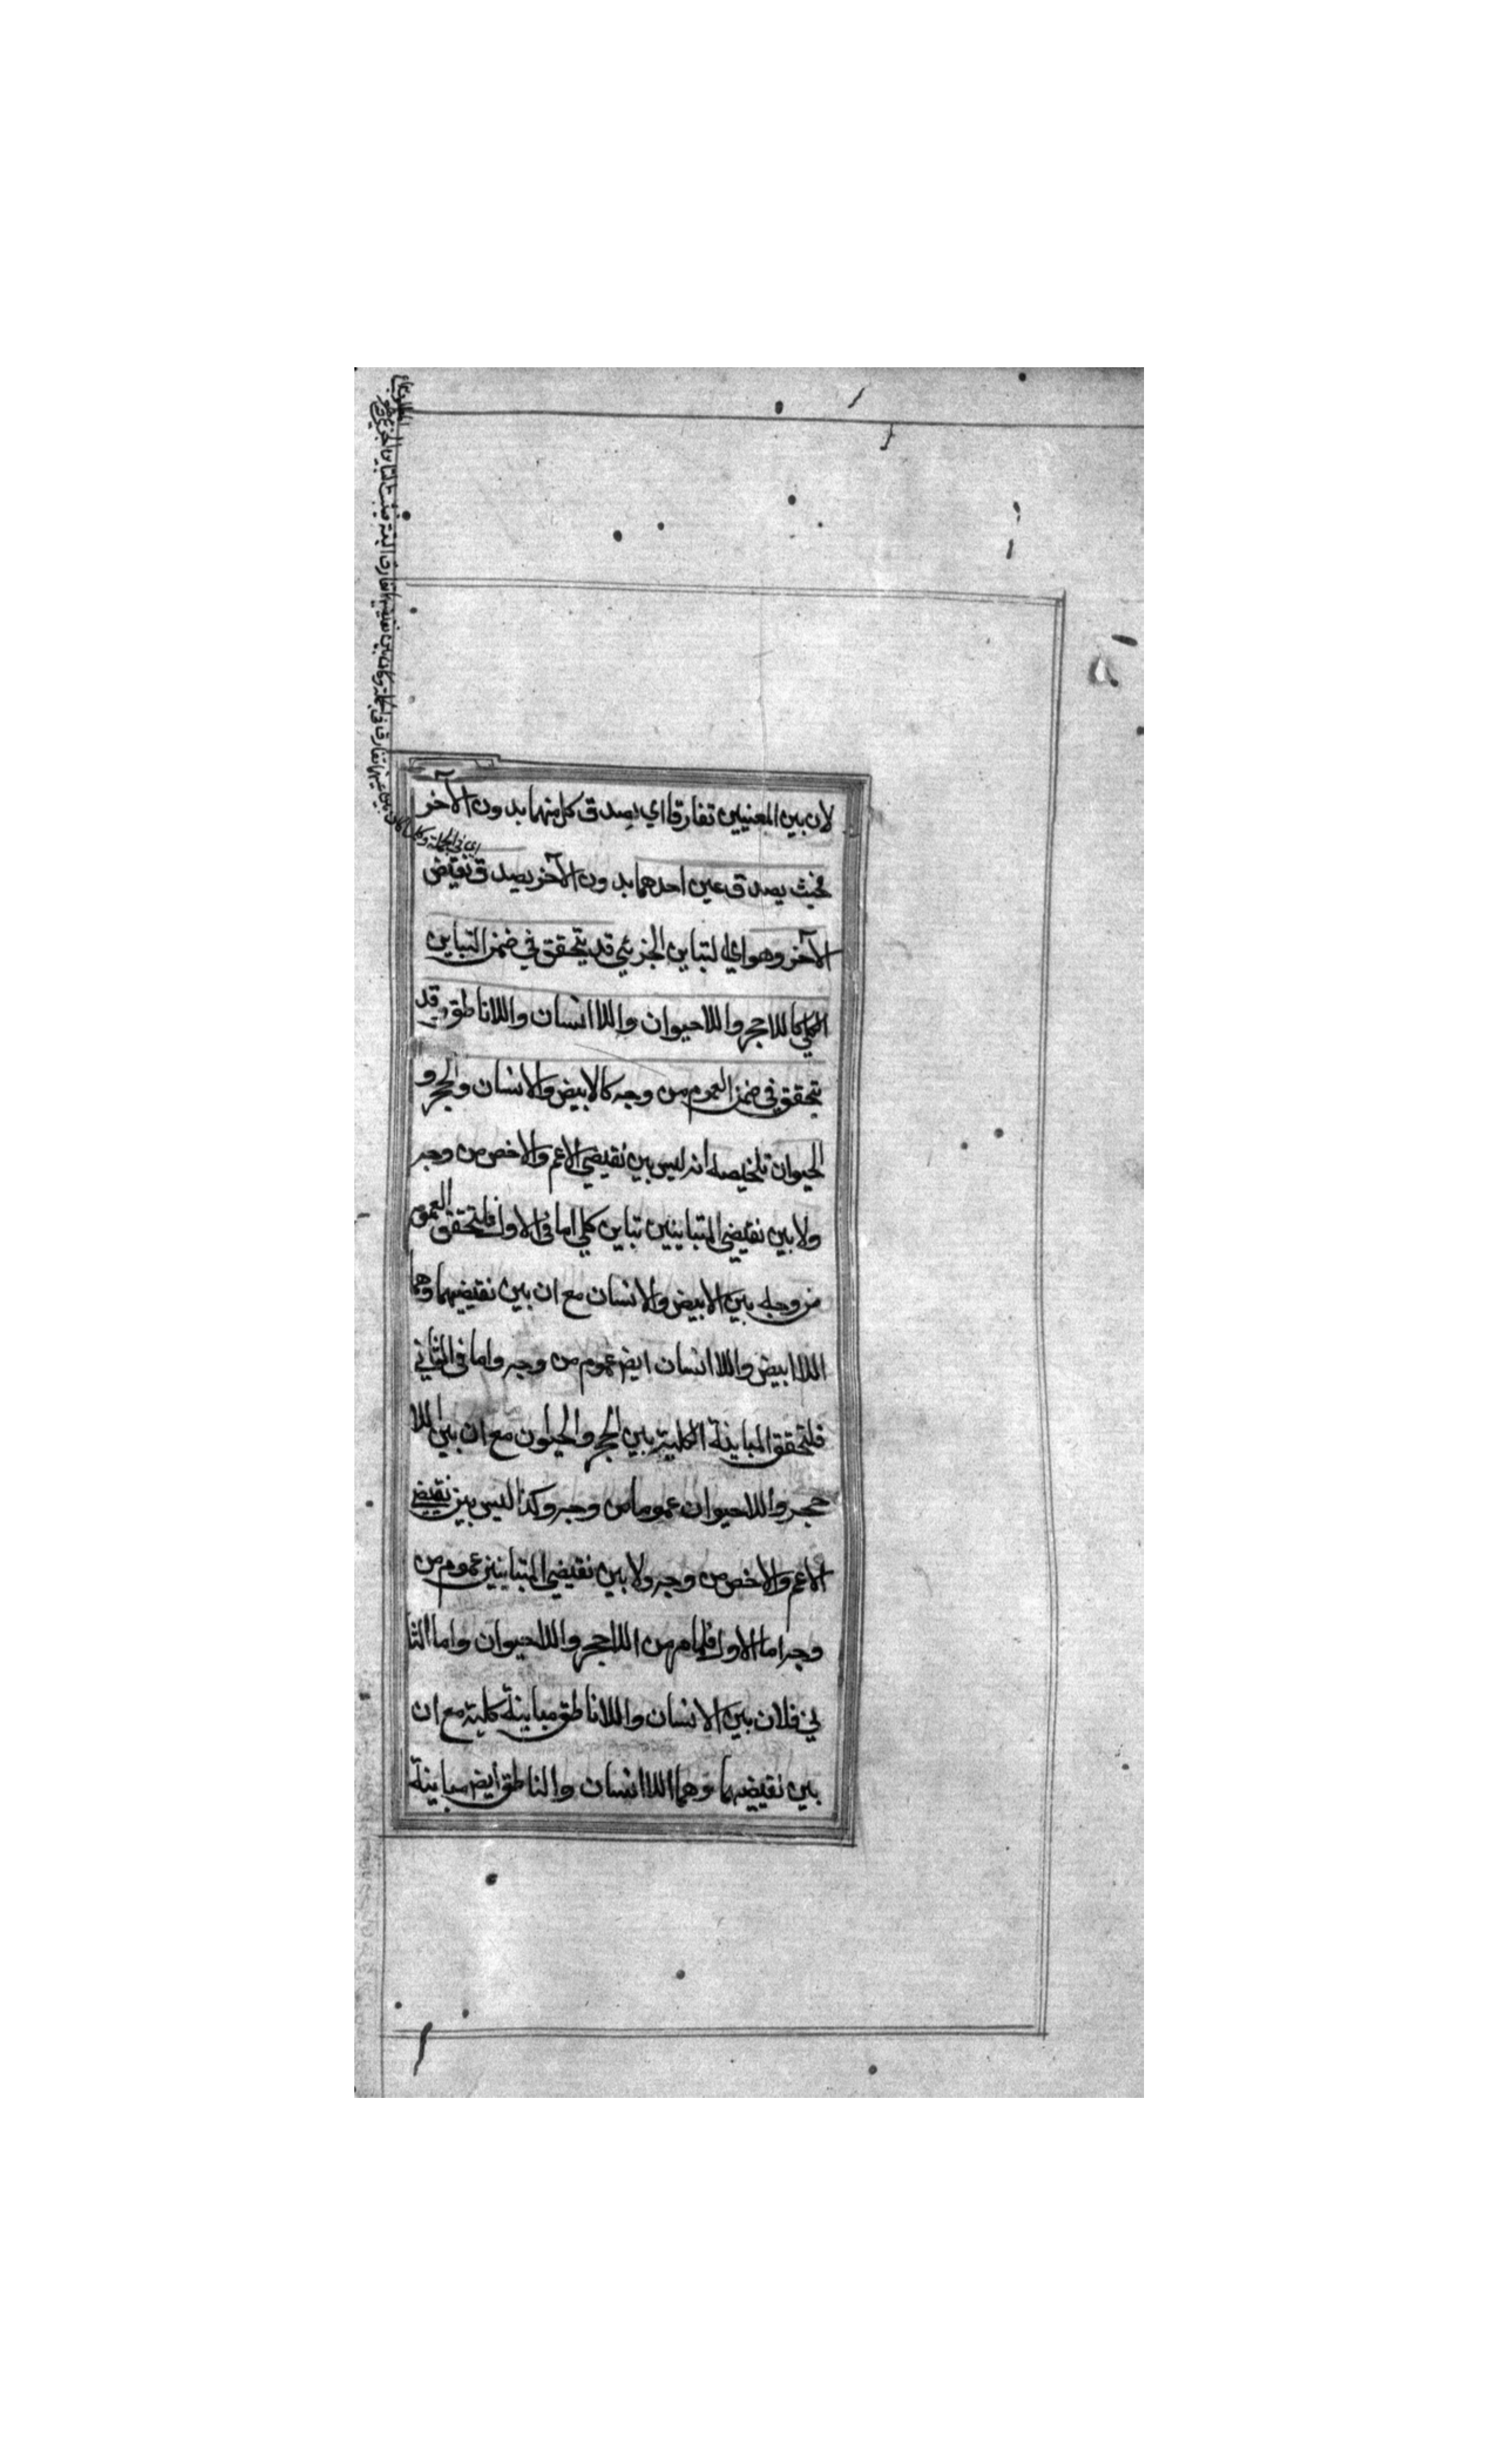 لان بين المعنيين تفارقا اي يصدق كل منهما بدون الآخر
فحيث يصدق عين احدهما بدون الآخر يصدق نقيض
الآخر وهو اي التباين الجزئي قد يتحقق في ضمن التباين
الكلي كاللاحجر واللاحيوان واللاانسان واللاناطق وقد
يتحقق في ضمن العموم من وجه كالابيض والانسان والحجر و
الحيوان تلخيصه انه ليس بين نقيضي الاعم والاخص من وجه
ولا بين نقيضي المتباينين تباين كلي اما في الاول فلتحقق العموم
من وجه بين الابيض والانسان مع ان بين نقيضهما وهما
اللاابيض واللاانسان ايضا عموم من وجه واما في الثاني
فلتحقق المباينة الكلية بين الحجر والحيوان مع ان بين اللا
حجر واللاحيوان عموما من وجه وكذا ليس بين نقيضي
الاعم والاخص من وجه ولا بين نقيضي المتباينين عموم من
وجه اما الاول فلما مر من اللاحجر واللاحيوان واما الثا
ني فلان بين الانسان واللاناطق مباينة كلية مع ان
بين نقيضهما وهما اللاانسان والناطق ايضا مباينة
اي في الجملة وكلما كان